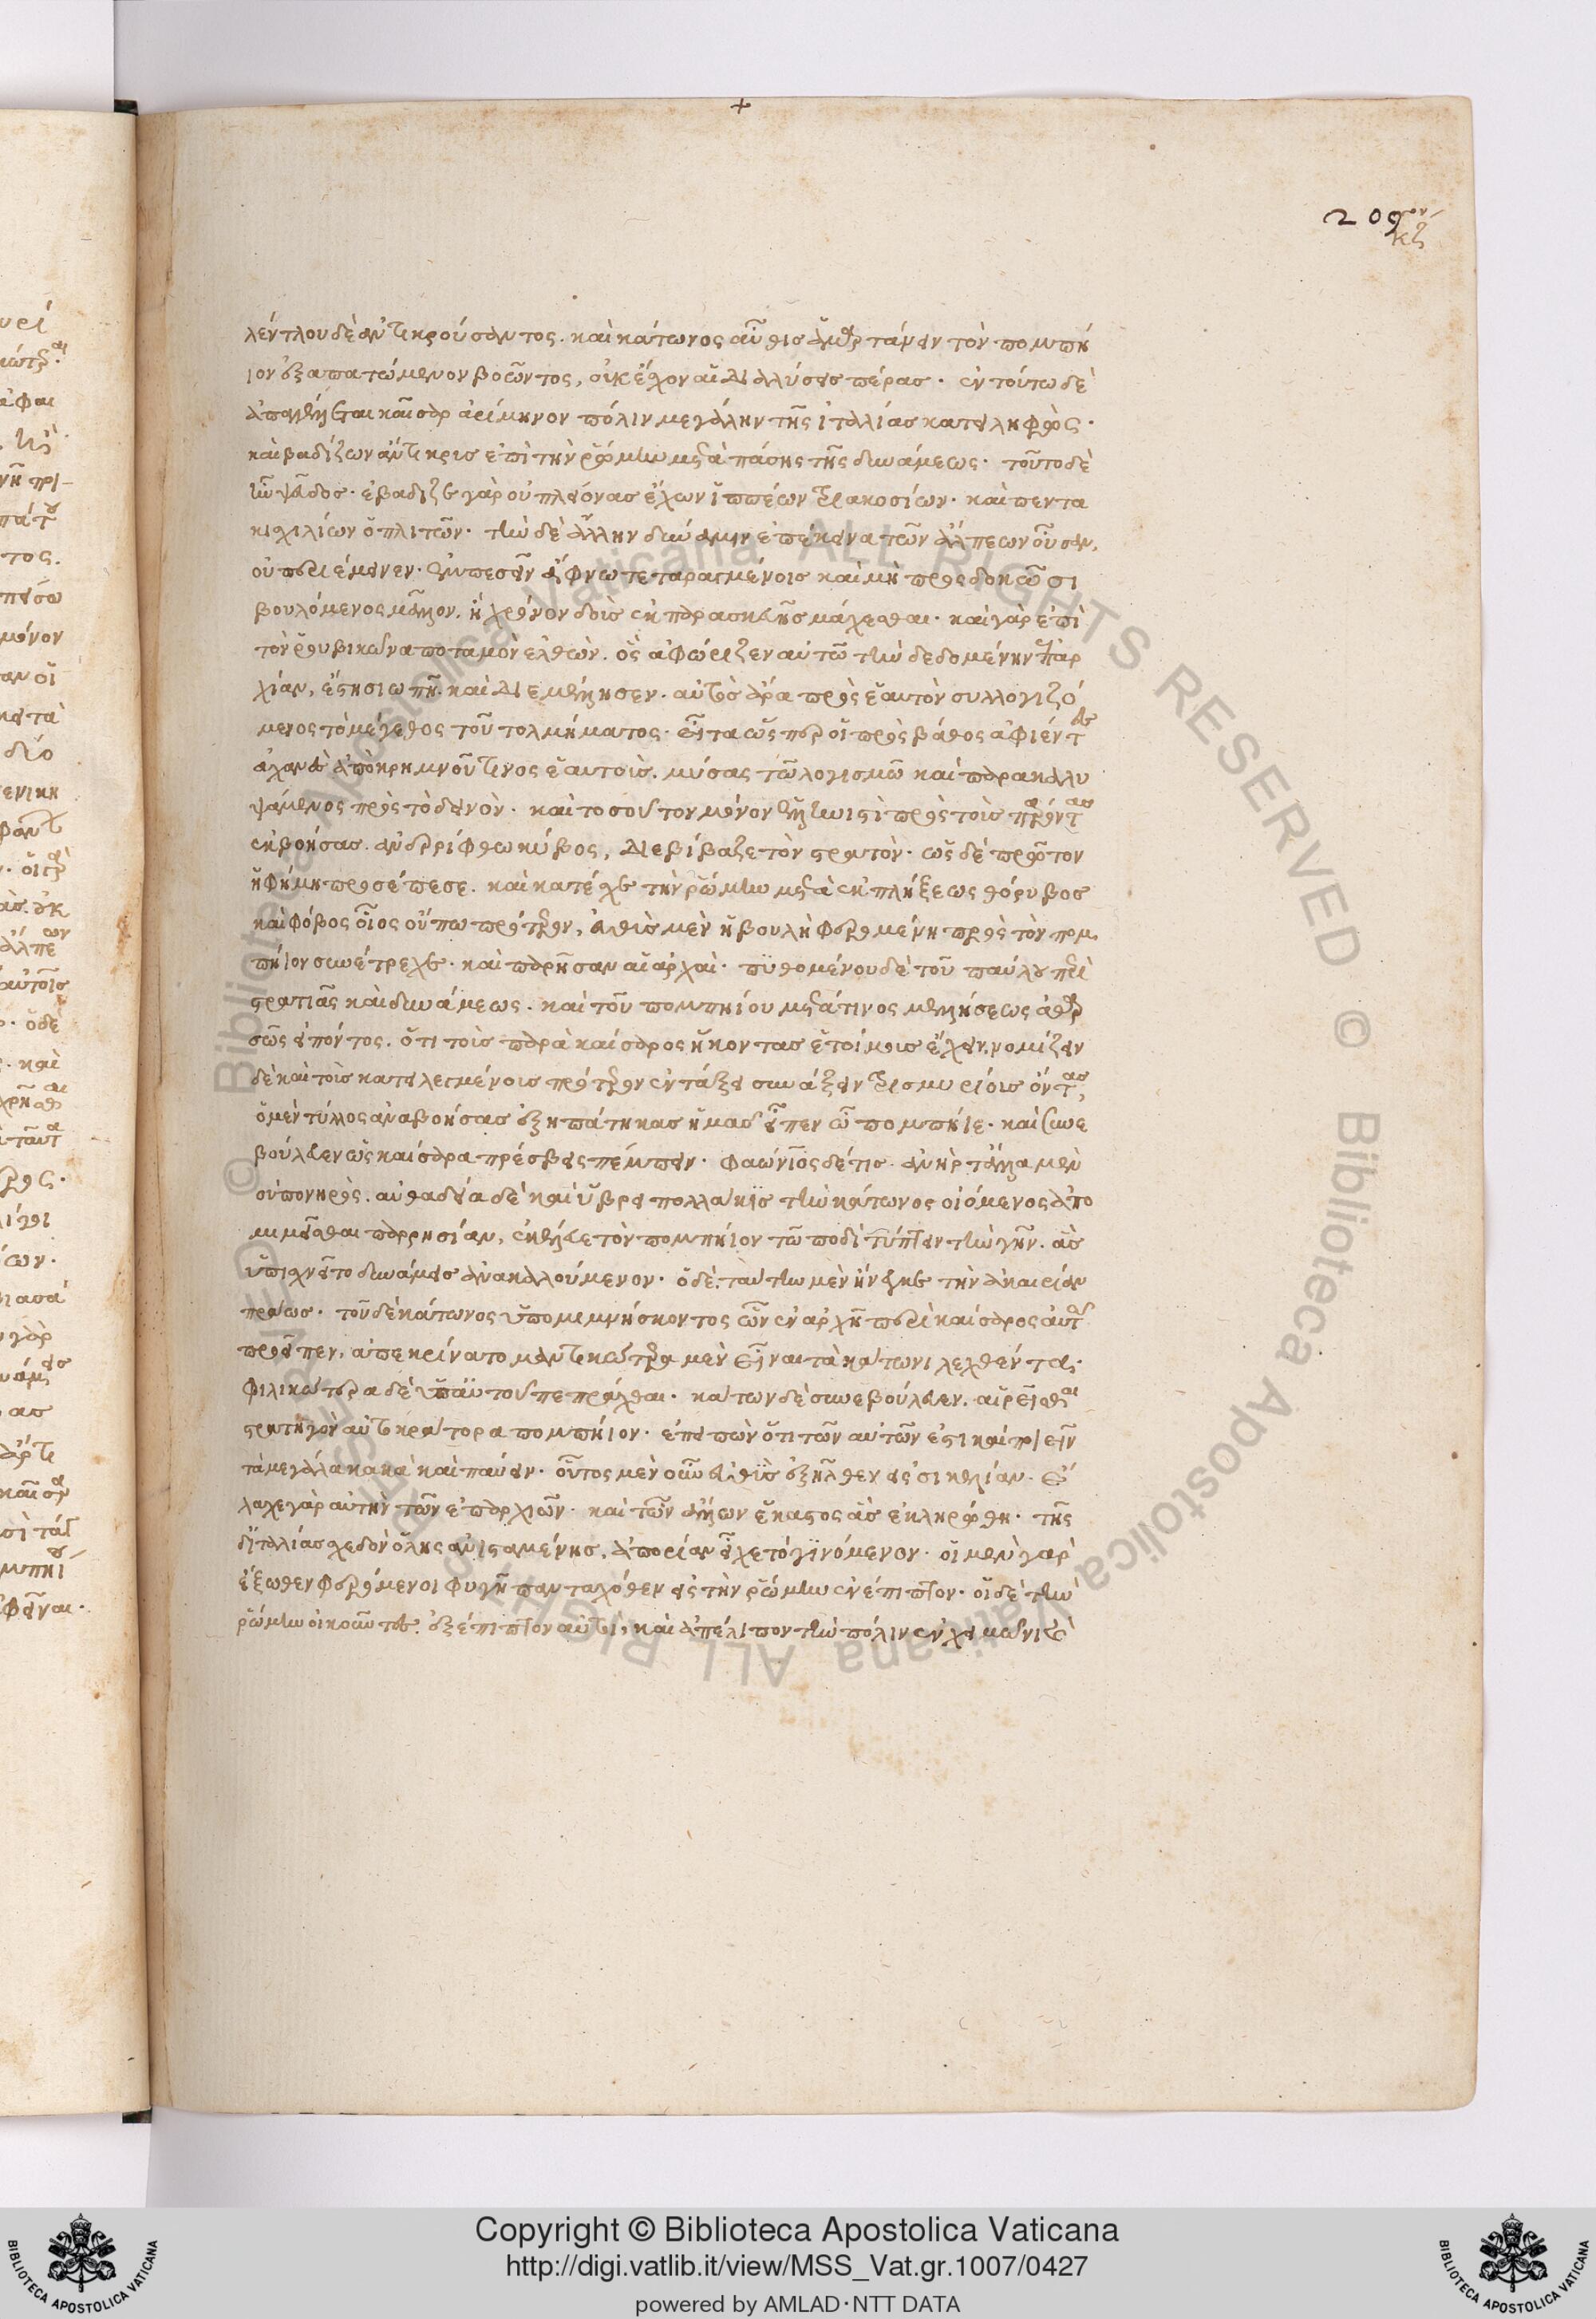 209ον
κζ
λέντλου δὲ ἀντικρούσαντος. καὶ κάτωνος αὖθις ἁμαρτάνειν τὸν πομπή
ιον ἐξαπατώμενον βοῶντος, οὐκ ἔσχον αἱ διαλύσεις πέρας. ἐν τούτω δὲ
ἀπαγγέλλεται καῖσαρ ἀρίμηνον πόλιν μεγάλην τῆς ἰταλίας κατειληφὼς.
καὶ βαδίζων ἄντικρις ἐπὶ τὴν ῥώμην μετὰ πάσης τῆς δυνάμεως. τοῦτο δὲ
ἦν ψεῦδος. ἐβάδιζε γὰρ οὐ πλείονας ἔχων ἱππέων τριακοσίων. καὶ πεντα
κισχιλίων ὁπλιτῶν. τὴν δὲ ἄλλην δύναμιν ἐπέκεινα τῶν ἄλπεων οὖσαν,
οὐ περιέμεινεν. ἐμπεσεῖν ἄφνω τεταραγμένοις καὶ μὴ προσδοκῶσι
βουλόμενος μᾶλλον. ἢ χρόνον δοὺς ἐκ παρασκευῆς μάχεσθαι. καὶ γὰρ ἐπὶ
τὸν ῥουβικῶνα ποταμὸν ἐλθὼν. ὃς ἀφώριζεν αὐτῶ τὴν δεδομένην ἐπαρ
χίαν, ἔστη σιωπῆ. καὶ διεμέλλησεν. αὐτὸς ἄρα πρὸς ἑαυτὸν συλλογιζό
μενος τὸ μέγεθος τοῦ τολμήματος. εἶτα ὥσπερ οἱ πρὸς βάθος ἀφιέντες
ἀχανὲς ἀπὸ κρημνοῦ τινος ἑαυτοὺς. μύσας τῶ λογισμῶ καὶ παρακαλυ
ψάμενος πρὸς τὸ δεινὸν. καὶ τοσοῦτον μόνον ἑλληνιστὶ πρὸς τοὺς παρόντας
ἐκβοήσας. ἀνερρίφθω κύβος, διεβίβαζε τὸν στρατὸν. ὡς δὲ πρῶτον
ἡ φήμη προσέπεσε. καὶ κατέσχε τὴν ῥώμην μετὰ ἐκπλήξεως θόρυβος
καὶ φόβος οἷος οὔπω πρότερον, εὐθὺς μὲν ἡ βουλὴ φερομένη πρὸς τὸν πομ
πήιον συνέτρεχε. καὶ παρῆσαν αἱ ἀρχαὶ. πυθομένου δὲ τοῦ παύλου περὶ
στρατιᾶς καὶ δυνάμεως. καὶ τοῦ πομπηίου μετά τινος μελλήσεως ἀθαρ
σῶς εἰπόντος. ὅτι τοὺς παρὰ καίσαρος ἥκοντας ἑτοίμους ἔχειν. νομίζειν
δὲ καὶ τοὺς κατειλεγμένους πρότερον ἐν τάξει συνάξειν τρισμυρίους ὄντας,
ὁ μὲν τύλλος ἀναβοήσας ἐξηπάτηκας ἡμᾶς εἶπεν ὦ πομπήιε. καὶ συνε
βούλευεν ὡς καίσαρα πρέσβεις πέμπειν. φαώνιος δέ τις. ἀνὴρ τἆλλα μὲν
οὐ πονηρὸς. αὐθαδεία δὲ καὶ ὕβρει πολλάκις τὴν κάτωνος οἰόμενος ἀπο
μιμεῖσθαι παρρησίαν, ἐκέλευε τὸν πομπήιον τῶ ποδὶ τύπτειν τὴν γῆν. ἃς
ὑπισχνεῖτο δυνάμεις ἀνακαλούμενον. ὁ δὲ. ταύτην μὲν ἤνεγκε τὴν ἀκαιρίαν
πράως. τοῦ δὲ κάτωνος ὑπομιμνήσκοντος ὧν ἐν ἀρχῆ περὶ καίσαρος αὐτῶ
προεῖπεν, ἀπεκρίνατο μαντικώτερα μὲν εἶναι τὰ κάτωνι λεχθέντα.
φιλικώτερα δὲ ὑπ᾽ αὐτοῦ πεπρᾶχθαι. κάτων δὲ συνεβούλευεν. αἱρεῖσθαι
στρατηγὸν αὐτοκράτορα πομπήιον. ἐπειπὼν ὅτι τῶν αὐτῶν ἐστι καὶ ποιεῖν
τὰ μεγάλα κακὰ καὶ παύειν. οὗτος μὲν οὖν εὐθὺς ἐξῆλθεν εἰς σικελίαν. ἔ
λαχε γὰρ αὐτὴν τῶν ἐπαρχιῶν. καὶ τῶν ἄλλων ἕκαστος ἃς ἐκληρώθη. τῆς
δ᾽ ἰταλίας σχεδὸν ὅλης ἀνισταμένης. ἀπορίαν εἶχε τὸ γινόμενον. οἱ μὲν γὰρ
ἔξωθεν φερόμενοι φυγῆ πανταχόθεν εἰς τὴν ῥώμην ἐνέπιπτον. οἱ δὲ τὴν
ῥώμην οἰκοῦντες. ἐξέπιπτον αὐτοὶ, καὶ ἀπέλιπον τὴν πόλιν ἐν χειμῶνι το
© Biblioteca Apostolica Vaticana ALL RIGHTS RESERVED
Copyright © Biblioteca Apostolica Vaticana
http://digi.vatlib.it/view/MSS_Vat.gr.1007/0427
powered by AMLAD·NTT DATA
BIBLIOTECA APOSTOLICA VATICANA
BIBLIOTECA APOSTOLICA VATICANA